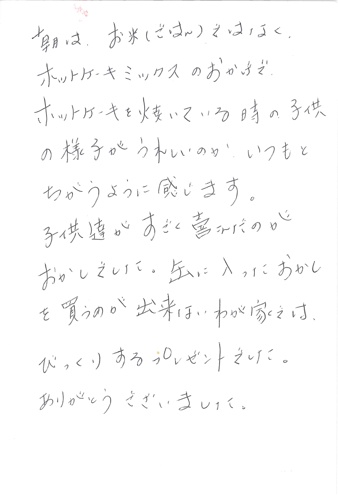 朝は、お米(ごはん)ではなく、
ホットケーキミックスのおかげで
ホットケーキを焼いている時の子供
の様子がうれしいのか、いつもと
ちがうように感じます。
子供達がすごく喜んだのが
おかしでした。缶に入ったおかし
を買うのが出来ないわが家では、
びっくりするプレゼントでした。
ありがとうございました。